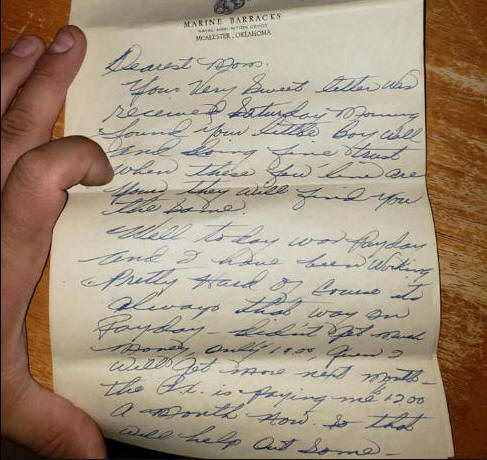 MARINE BARRACKS
NAVAL AMMUNITION DEPOT
MCALESTER, OKLAHOMA
Dearest Mom.
Your Very Sweet letter was
received Saturday Morning
found your little Boy well
and doing fine trust
When these few line are
they will find you
the same.
Well today was Payday
and I have been Working
Pretty Hard of Course its
always that way on
Payday - didn't get much
money only Guess I
will get more next month -
the P.X. is paying me 12.00
a month now. So that
will help out some -